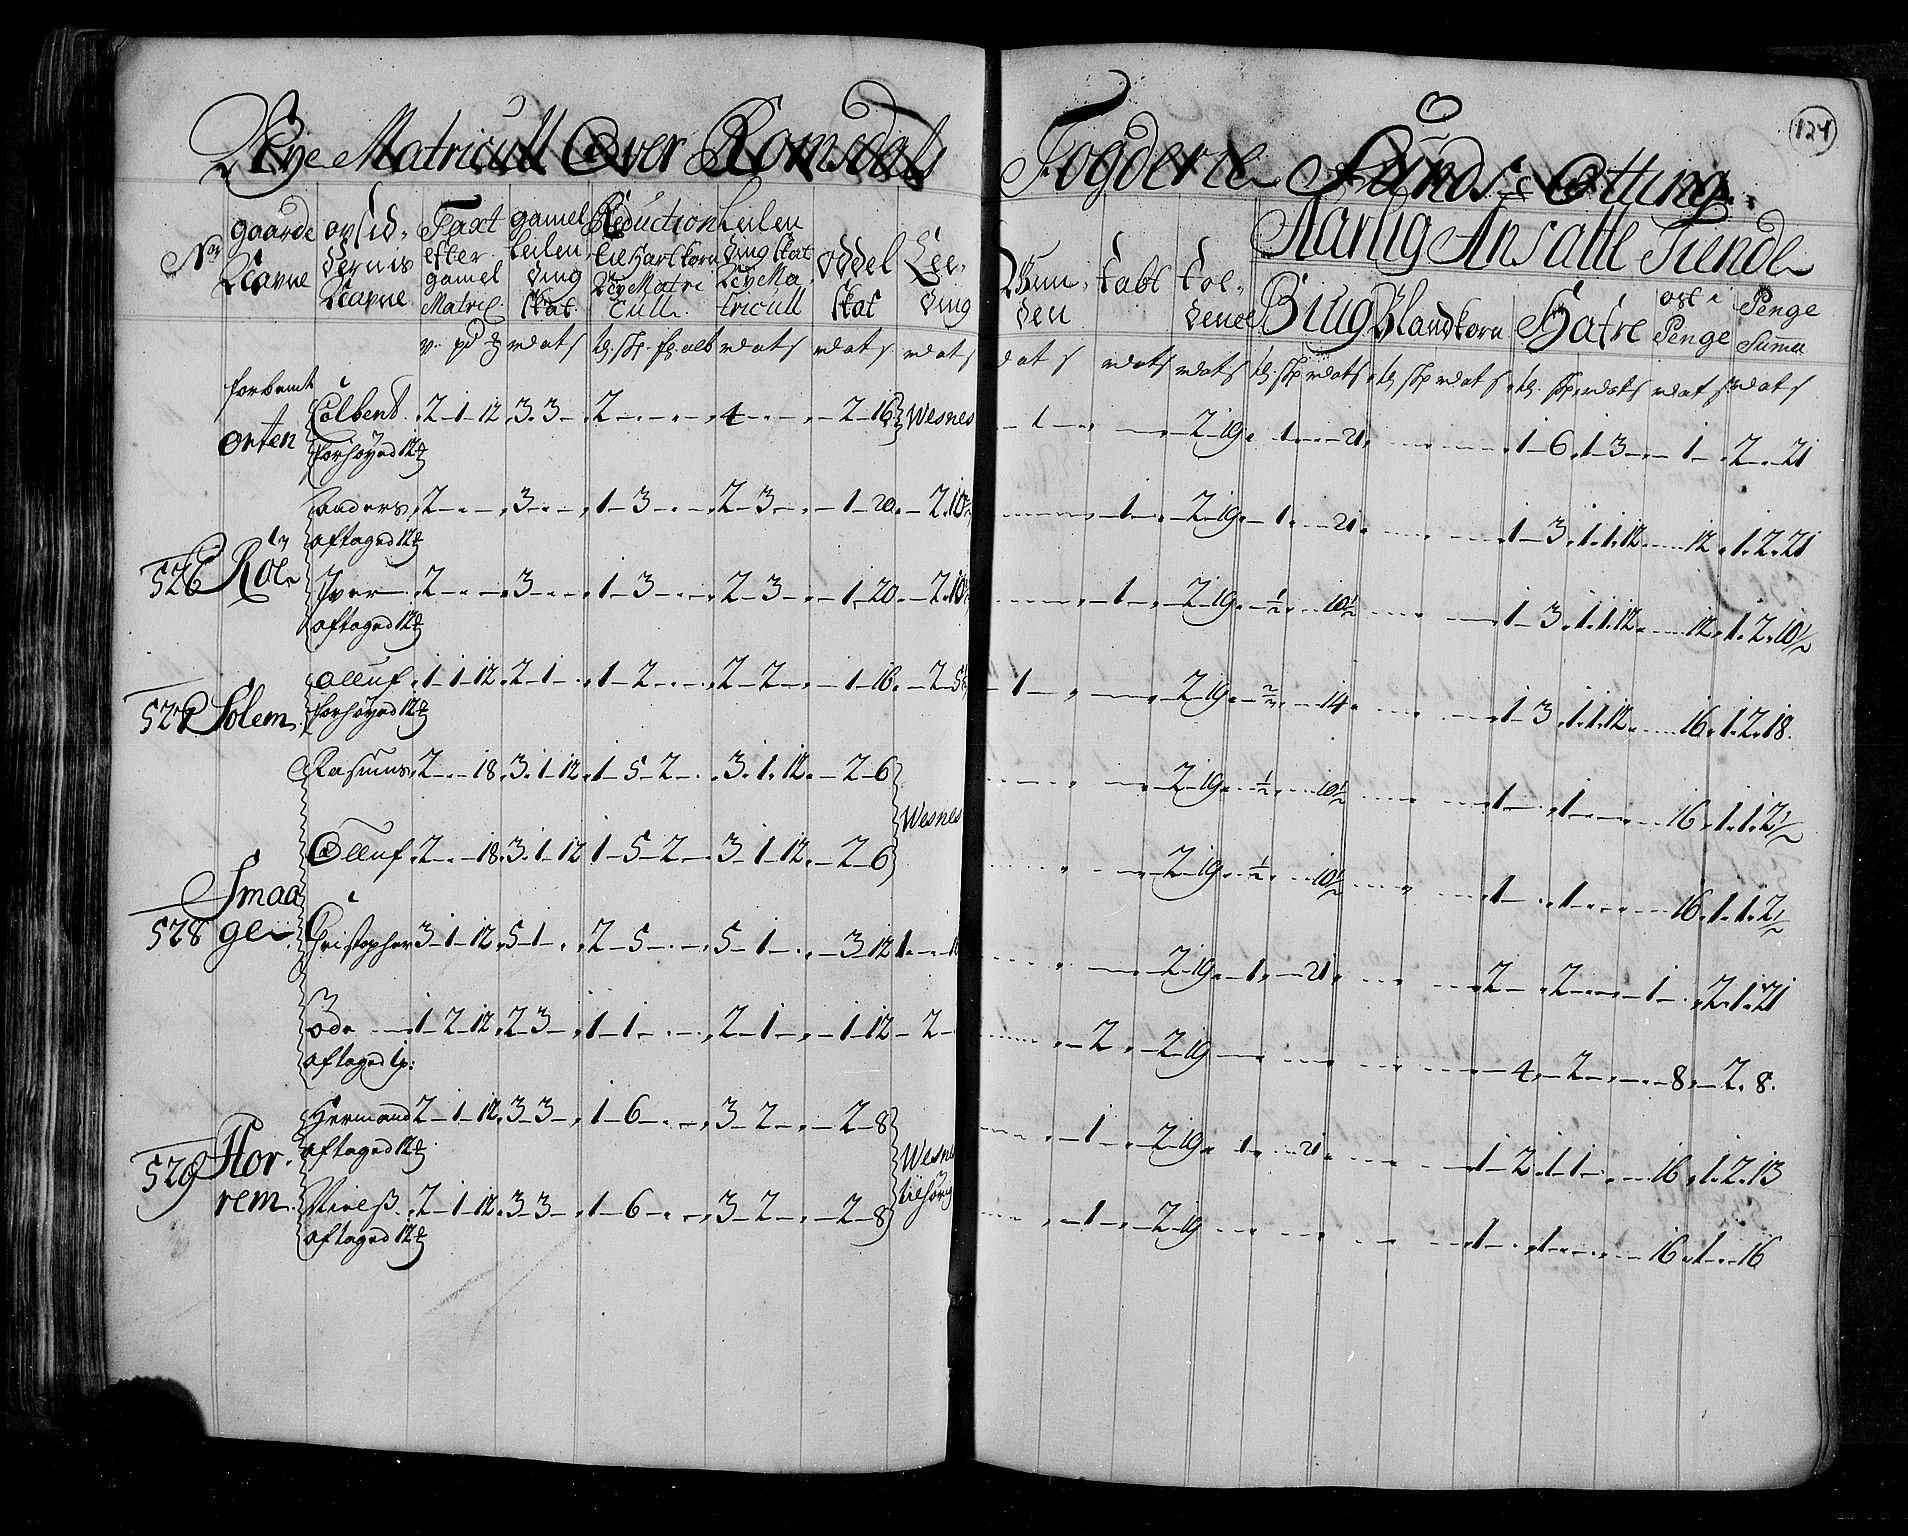 Nye Matricull Over Romsdals Fogderie Sunds Otting
124
No gaarde Nafne opsid dernis Nafne Taxt efter gamel Matric gamel Leilen ding skat Reduction til Hartkorn Ney Matri cull Leilen ding skat Ney Ma tricull oddel skat
Aarlig Ansatte Tiende
Biug Blandkorn Hafre ost i Penge Penge Suma
forbemt
orten Colbent 2 1 12 3 3 2 4 2 16 Wesnes 1 2 19 1 21 1 6 1 3 1 2 21
forhøyed 12
Anders 2 3 1 3 2 3 1 20 2 10 1 2 19 1 21 1 3 1 1 12 12 1 2 21
aftaged 12
526 Röe Iver 2 3 1 3 2 3 1 20 2 10 1 2 19 1/2 10 1/2 1 3 1 1 12 12 1 2 10 1/2
aftaged 12
527 Solem Olluf 1 1 12 2 1 1 2 2 2 1 16 2 5 1 2 19 2/3 14 1 3 1 1 12 16 1 2 18
forhøyed 12
Rasmus 2 18 3 1 12 1 5 2 3 1 12 2 6 2 19 1/2 10 1/2 1 1 16 1 1 2 1/2
Wesnes
Olluf 2 18 3 1 12 1 5 2 3 1 12 2 6 2 19 1/2 10 1/2 1 1 16 1 1 2 1/2
528 Smaa ge Christopher 3 1 12 5 1 2 5 5 1 3 12 1 2 19 1 21 2 2 1 2 1 21
Ode 1 2 12 2 3 1 1 2 1 1 12 2 2 2 19 4 2 8 2 8
aftaged 1 p:
Hermand 2 1 12 3 3 1 6 3 2 2 8 1 2 19 1 21 1 2 1 1 16 1 2 13
aftaged 12
529 Hor rem Niels 2 1 12 3 3 1 6 3 2 2 8 Wesnes 1 2 19 1 1 16 1 16
aftaged 12